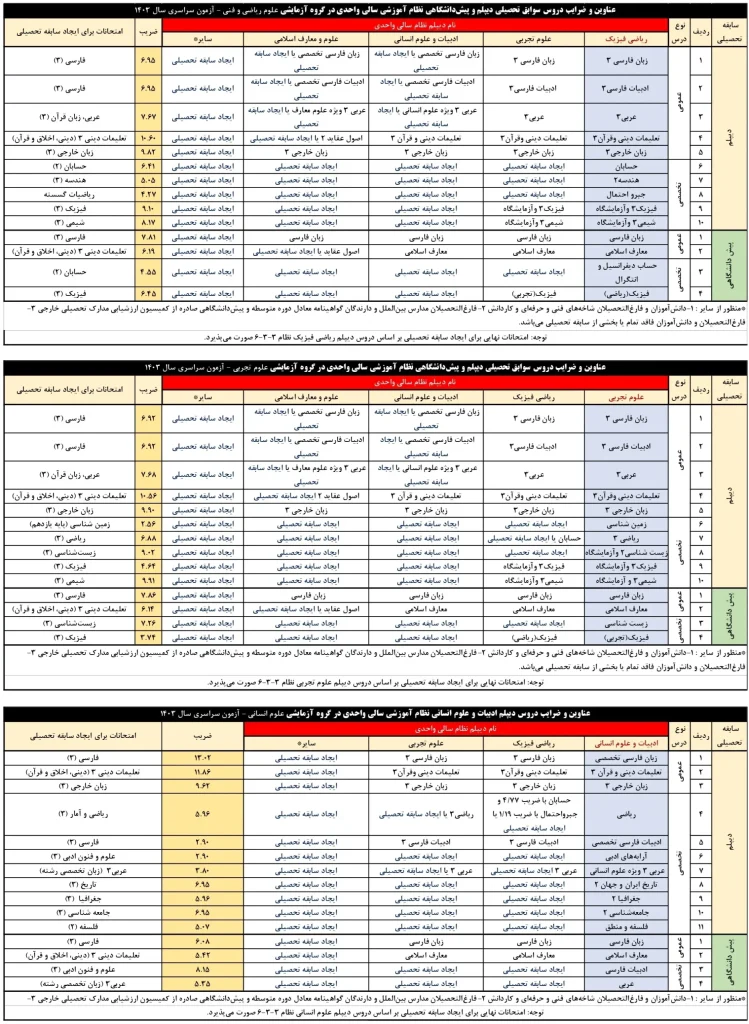 عناوین و ضرایب دروس سوابق تحصیلی دیپلم و پیش‌دانشگاهی نظام آموزشی سالی واحدی در گروه آزمایشی علوم ریاضی و فنی - آزمون سراسری سال ۱۴۰۳
سابقه تحصیلی ردیف نوع درس نام دیپلم نظام سالی واحدی ضریب امتحانات برای ایجاد سابقه تحصیلی
ریاضی فیزیک علوم تجربی ادبیات و علوم انسانی علوم و معارف اسلامی سایر*
دیپلم
عمومی
۱ زبان فارسی ۳ زبان فارسی ۳ زبان فارسی تخصصی یا ایجاد سابقه تحصیلی زبان فارسی تخصصی یا ایجاد سابقه تحصیلی ایجاد سابقه تحصیلی ۶.۹۵ فارسی (۳)
۲ ادبیات فارسی ۳ ادبیات فارسی ۳ ادبیات فارسی تخصصی یا ایجاد سابقه تحصیلی ادبیات فارسی تخصصی یا ایجاد سابقه تحصیلی ایجاد سابقه تحصیلی ۶.۹۵ فارسی (۳)
۳ عربی ۳ عربی ۳ عربی ۳ ویژه علوم انسانی یا ایجاد سابقه تحصیلی عربی ۳ ویژه علوم معارف یا ایجاد سابقه تحصیلی ایجاد سابقه تحصیلی ۷.۶۷ عربی، زبان قرآن (۳)
۴ تعلیمات دینی وقرآن۳ تعلیمات دینی وقرآن۳ تعلیمات دینی و قرآن ۳ اصول عقاید ۲ یا ایجاد سابقه تحصیلی ایجاد سابقه تحصیلی ۱۰.۶۰ تعلیمات دینی ۳ (دینی، اخلاق و قرآن)
۵ زبان خارجی۳ زبان خارجی ۳ زبان خارجی ۳ زبان خارجی ۳ ایجاد سابقه تحصیلی ۹.۸۲ زبان خارجی (۳)
تخصصی
۶ حسابان ایجاد سابقه تحصیلی ایجاد سابقه تحصیلی ایجاد سابقه تحصیلی ایجاد سابقه تحصیلی ۶.۴۱ حسابان (۲)
۷ هندسه۲ ایجاد سابقه تحصیلی ایجاد سابقه تحصیلی ایجاد سابقه تحصیلی ایجاد سابقه تحصیلی ۵.۰۵ هندسه (۳)
۸ جبرو احتمال ایجاد سابقه تحصیلی ایجاد سابقه تحصیلی ایجاد سابقه تحصیلی ایجاد سابقه تحصیلی ۴.۲۷ ریاضیات گسسته
۹ فیزیک۳ وآزمایشگاه فیزیک۳ وآزمایشگاه ایجاد سابقه تحصیلی ایجاد سابقه تحصیلی ایجاد سابقه تحصیلی ۹.۱۰ فیزیک (۳)
۱۰ شیمی۳ وآزمایشگاه شیمی۳ وآزمایشگاه ایجاد سابقه تحصیلی ایجاد سابقه تحصیلی ایجاد سابقه تحصیلی ۸.۱۷ شیمی (۳)
پیش دانشگاهی
عمومی
۱ زبان فارسی زبان فارسی زبان فارسی زبان فارسی ایجاد سابقه تحصیلی ۷.۸۱ فارسی (۳)
۲ معارف اسلامی معارف اسلامی معارف اسلامی اصول عقاید یا ایجاد سابقه تحصیلی ایجاد سابقه تحصیلی ۶.۱۹ تعلیمات دینی ۳ (دینی، اخلاق و قرآن)
تخصصی
۳ حساب دیفرانسیل و انتگرال ایجاد سابقه تحصیلی ایجاد سابقه تحصیلی ایجاد سابقه تحصیلی ایجاد سابقه تحصیلی ۴.۵۵ حسابان (۲)
۴ فیزیک(ریاضی) فیزیک(تجربی) ایجاد سابقه تحصیلی ایجاد سابقه تحصیلی ایجاد سابقه تحصیلی ۶.۴۵ فیزیک (۳)
*منظور از سایر : ۱-دانش‌آموزان و فارغ‌التحصیلان شاخه‌های فنی و حرفه‌ای و کاردانش ۲-فارغ‌التحصیلان مدارس بین‌الملل و دارندگان گواهینامه معادل دوره متوسطه و پیش‌دانشگاهی صادره از کمیسیون ارزشیابی مدارک تحصیلی خارجی ۳-
فارغ‌التحصیلان و دانش‌آموزان فاقد تمام یا بخشی از سابقه تحصیلی می‌باشد.
توجه: امتحانات نهایی برای ایجاد سابقه تحصیلی بر اساس دروس دیپلم ریاضی فیزیک نظام ۳-۳-۶ صورت می‌پذیرد.
عناوین و ضرایب دروس سوابق تحصیلی دیپلم و پیش‌دانشگاهی نظام آموزشی سالی واحدی در گروه آزمایشی علوم تجربی - آزمون سراسری سال ۱۴۰۳
سابقه تحصیلی ردیف نوع درس نام دیپلم نظام سالی واحدی ضریب امتحانات برای ایجاد سابقه تحصیلی
علوم تجربی ریاضی فیزیک ادبیات و علوم انسانی علوم و معارف اسلامی سایر*
دیپلم
عمومی
۱ زبان فارسی ۳ زبان فارسی ۳ زبان فارسی تخصصی یا ایجاد سابقه تحصیلی زبان فارسی تخصصی یا ایجاد سابقه تحصیلی ایجاد سابقه تحصیلی ۶.۹۲ فارسی (۳)
۲ ادبیات فارسی ۳ ادبیات فارسی۳ ادبیات فارسی تخصصی یا ایجاد سابقه تحصیلی ادبیات فارسی تخصصی یا ایجاد سابقه تحصیلی ایجاد سابقه تحصیلی ۶.۹۲ فارسی (۳)
۳ عربی۳ عربی۳ عربی ۳ ویژه علوم انسانی یا ایجاد سابقه تحصیلی عربی ۳ ویژه علوم معارف یا ایجاد سابقه تحصیلی ایجاد سابقه تحصیلی ۷.۶۸ عربی، زبان قرآن (۳)
۴ تعلیمات دینی وقرآن۳ تعلیمات دینی وقرآن۳ تعلیمات دینی و قرآن ۳ اصول عقاید ۲ ایجاد سابقه تحصیلی ایجاد سابقه تحصیلی ۱۰.۵۶ تعلیمات دینی ۳ (دینی، اخلاق و قرآن)
۵ زبان خارجی ۳ زبان خارجی ۳ زبان خارجی ۳ زبان خارجی ۳ ایجاد سابقه تحصیلی ۹.۹۰ زبان خارجی (۳)
تخصصی
۶ زمین شناسی ایجاد سابقه تحصیلی ایجاد سابقه تحصیلی ایجاد سابقه تحصیلی ایجاد سابقه تحصیلی ۲.۵۶ زمین شناسی (پایه یازدهم)
۷ ریاضی ۳ حسابان یا ایجاد سابقه تحصیلی ایجاد سابقه تحصیلی ایجاد سابقه تحصیلی ایجاد سابقه تحصیلی ۶.۸۸ ریاضی (۳)
۸ زیست شناسی۲ وآزمایشگاه ایجاد سابقه تحصیلی ایجاد سابقه تحصیلی ایجاد سابقه تحصیلی ایجاد سابقه تحصیلی ۹.۰۲ زیست‌شناسی (۳)
۹ فیزیک۳ وآزمایشگاه فیزیک۳ وآزمایشگاه ایجاد سابقه تحصیلی ایجاد سابقه تحصیلی ایجاد سابقه تحصیلی ۴.۶۴ فیزیک (۳)
۱۰ شیمی۳ و آزمایشگاه شیمی۳ و آزمایشگاه ایجاد سابقه تحصیلی ایجاد سابقه تحصیلی ایجاد سابقه تحصیلی ۹.۹۱ شیمی (۳)
پیش دانشگاهی
عمومی
۱ زبان فارسی زبان فارسی زبان فارسی زبان فارسی ایجاد سابقه تحصیلی ۷.۸۶ فارسی (۳)
۲ معارف اسلامی معارف اسلامی معارف اسلامی اصول عقاید یا ایجاد سابقه تحصیلی ایجاد سابقه تحصیلی ۶.۱۴ تعلیمات دینی ۳ (دینی، اخلاق و قرآن)
تخصصی
۳ زیست شناسی ایجاد سابقه تحصیلی ایجاد سابقه تحصیلی ایجاد سابقه تحصیلی ایجاد سابقه تحصیلی ۷.۲۶ زیست‌شناسی (۳)
۴ فیزیک(تجربی) فیزیک(ریاضی) ایجاد سابقه تحصیلی ایجاد سابقه تحصیلی ایجاد سابقه تحصیلی ۳.۷۴ فیزیک (۳)
*منظور از سایر : ۱-دانش‌آموزان و فارغ‌التحصیلان شاخه‌های فنی و حرفه‌ای و کاردانش ۲-فارغ‌التحصیلان مدارس بین‌الملل و دارندگان گواهینامه معادل دوره متوسطه و پیش‌دانشگاهی صادره از کمیسیون ارزشیابی مدارک تحصیلی خارجی ۳-
فارغ‌التحصیلان و دانش‌آموزان فاقد تمام یا بخشی از سابقه تحصیلی می‌باشد.
توجه: امتحانات نهایی برای ایجاد سابقه تحصیلی بر اساس دروس دیپلم علوم تجربی نظام ۳-۳-۶ صورت می‌پذیرد.
عناوین و ضرایب دروس دیپلم ادبیات و علوم انسانی نظام آموزشی سالی واحدی در گروه آزمایشی علوم انسانی - آزمون سراسری سال ۱۴۰۳
سابقه تحصیلی ردیف نوع درس نام دیپلم نظام سالی واحدی ضریب امتحانات برای ایجاد سابقه تحصیلی
ادبیات و علوم انسانی ریاضی فیزیک علوم تجربی سایر*
دیپلم
عمومی
۱ زبان فارسی تخصصی زبان فارسی ۳ زبان فارسی ۳ ایجاد سابقه تحصیلی ۱۳.۰۲ فارسی (۳)
۲ تعلیمات دینی و قرآن ۳ تعلیمات دینی وقرآن۳ تعلیمات دینی وقرآن۳ ایجاد سابقه تحصیلی ۱۱.۸۶ تعلیمات دینی ۳ (دینی، اخلاق و قرآن)
۳ زبان خارجی ۳ زبان خارجی ۳ زبان خارجی ۳ ایجاد سابقه تحصیلی ۹.۶۲ زبان خارجی (۳)
تخصصی
۴ ریاضی حسابان با ضریب ۴/۷۷ و جبرواحتمال با ضریب ۱/۱۹ یا ایجاد سابقه تحصیلی ریاضی۳ یا ایجاد سابقه تحصیلی ایجاد سابقه تحصیلی ۵.۹۶ ریاضی و آمار (۳)
۵ ادبیات فارسی تخصصی ادبیات فارسی ۳ ادبیات فارسی ۳ ایجاد سابقه تحصیلی ۲.۹۰ فارسی (۳)
۶ آرایه‌های ادبی ایجاد سابقه تحصیلی ایجاد سابقه تحصیلی ایجاد سابقه تحصیلی ۲.۹۰ علوم و فنون ادبی (۳)
۷ عربی ۳ ویژه علوم انسانی عربی ۳ ایجاد سابقه تحصیلی عربی ۳ یا ایجاد سابقه تحصیلی ایجاد سابقه تحصیلی ۳.۸۰ عربی۳ (زبان تخصصی رشته)
۸ تاریخ ایران و جهان ۲ ایجاد سابقه تحصیلی ایجاد سابقه تحصیلی ایجاد سابقه تحصیلی ۶.۹۵ تاریخ (۳)
۹ جغرافیا ۲ ایجاد سابقه تحصیلی ایجاد سابقه تحصیلی ایجاد سابقه تحصیلی ۵.۹۶ جغرافیا (۳)
۱۰ جامعه‌شناسی ۲ ایجاد سابقه تحصیلی ایجاد سابقه تحصیلی ایجاد سابقه تحصیلی ۶.۹۵ جامعه شناسی (۳)
۱۱ فلسفه و منطق ایجاد سابقه تحصیلی ایجاد سابقه تحصیلی ایجاد سابقه تحصیلی ۵.۰۷ فلسفه (۲)
پیش دانشگاهی
عمومی
۱ زبان فارسی زبان فارسی زبان فارسی ایجاد سابقه تحصیلی ۶.۰۸ فارسی (۳)
۲ معارف اسلامی معارف اسلامی معارف اسلامی ایجاد سابقه تحصیلی ۵.۴۲ تعلیمات دینی ۳ (دینی، اخلاق و قرآن)
تخصصی
۳ ادبیات فارسی ایجاد سابقه تحصیلی ایجاد سابقه تحصیلی ایجاد سابقه تحصیلی ۸.۱۵ علوم و فنون ادبی (۳)
۴ عربی ایجاد سابقه تحصیلی ایجاد سابقه تحصیلی ایجاد سابقه تحصیلی ۵.۳۵ عربی۳ (زبان تخصصی رشته)
*منظور از سایر : ۱-دانش‌آموزان و فارغ‌التحصیلان شاخه‌های فنی و حرفه‌ای و کاردانش ۲-فارغ‌التحصیلان مدارس بین‌الملل و دارندگان گواهینامه معادل دوره متوسطه و پیش‌دانشگاهی صادره از کمیسیون ارزشیابی مدارک تحصیلی خارجی ۳-
فارغ‌التحصیلان و دانش‌آموزان فاقد تمام یا بخشی از سابقه تحصیلی می‌باشد.
توجه: امتحانات نهایی برای ایجاد سابقه تحصیلی بر اساس دروس دیپلم علوم انسانی نظام ۳-۳-۶ صورت می‌پذیرد.